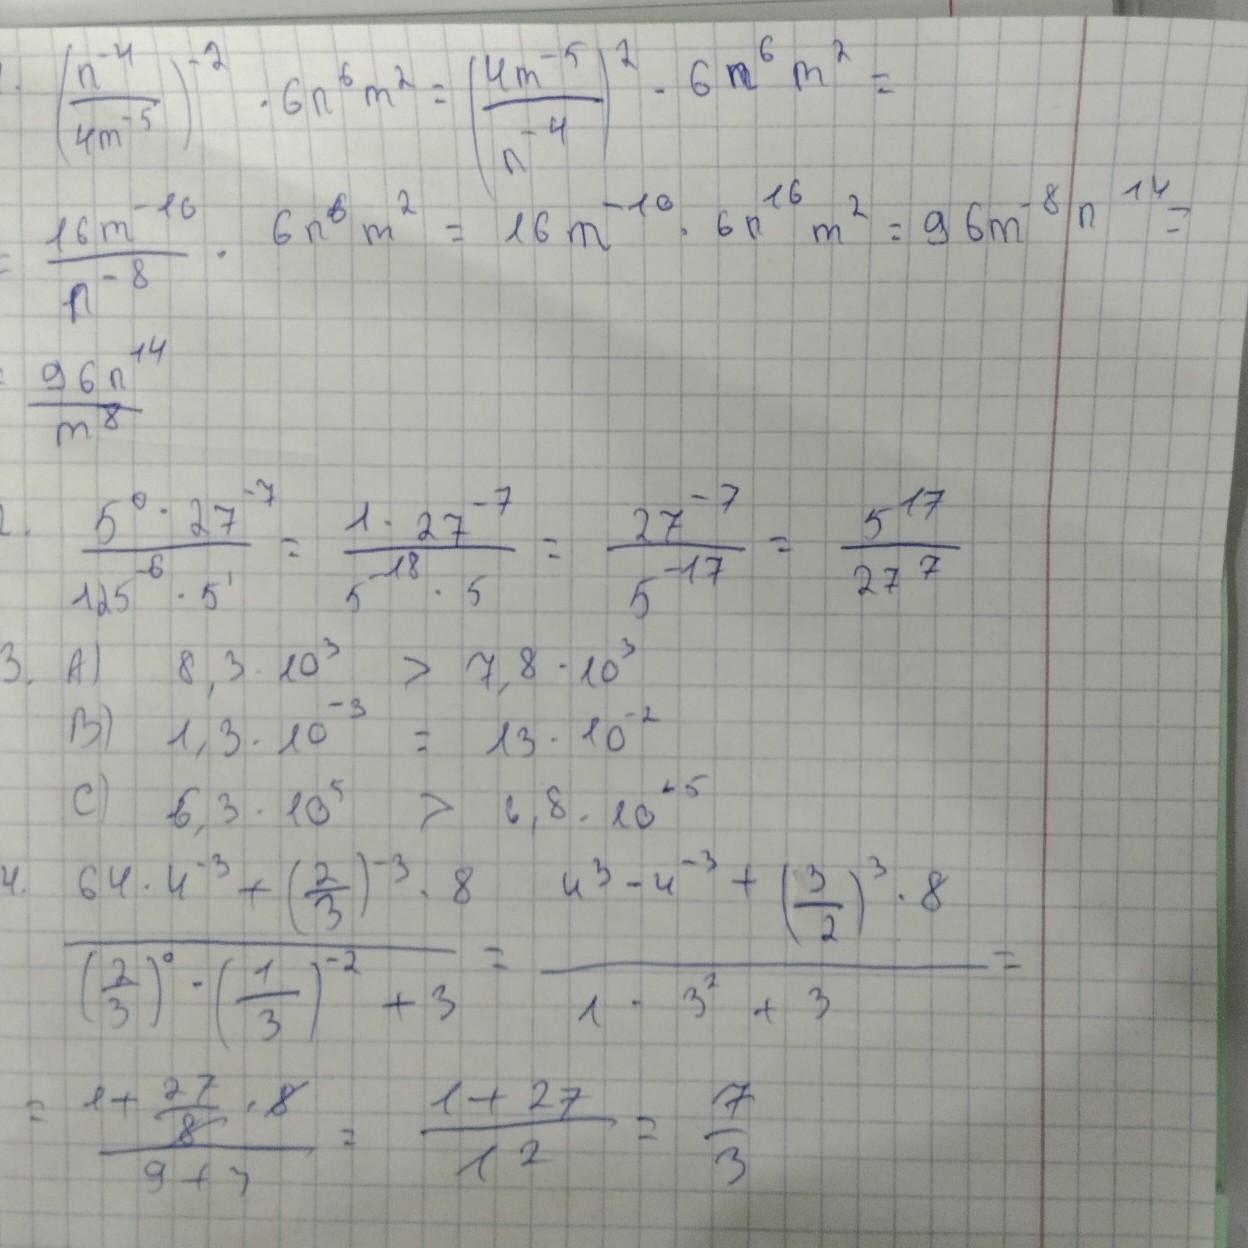 1. (n⁻⁴/4m⁻⁵)⁻² · 6n⁶m² = (4m⁻⁵/n⁻⁴)² · 6n⁶m² =
= 16m⁻¹⁰/n⁻⁸ · 6n⁶m² = 16m⁻¹⁰ · 6n¹⁶m² = 96m⁻⁸n¹⁴ =
= 96n¹⁴/m⁸
2. 5⁰ · 27⁻⁷/125⁻⁶ · 5¹ = 1 · 27⁻⁷/5⁻¹⁸ · 5 = 27⁻⁷/5⁻¹⁷ = 5¹⁷/27⁷
3. A) 8,3 · 10³ > 7,8 · 10³
B) 1,3 · 10⁻³ = 13 · 10⁻²
C) 6,3 · 10⁵ > 6,8 · 10⁻⁵
4. (64 · 4⁻³ + (2/3)⁻³ · 8)/((2/3)⁰ · (1/3)⁻² + 3) = (4³ · 4⁻³ + (3/2)³ · 8)/(1 · 3² + 3) =
= (1 + 27/8 · 8)/(9 + 3) = (1 + 27)/12 = 7/3